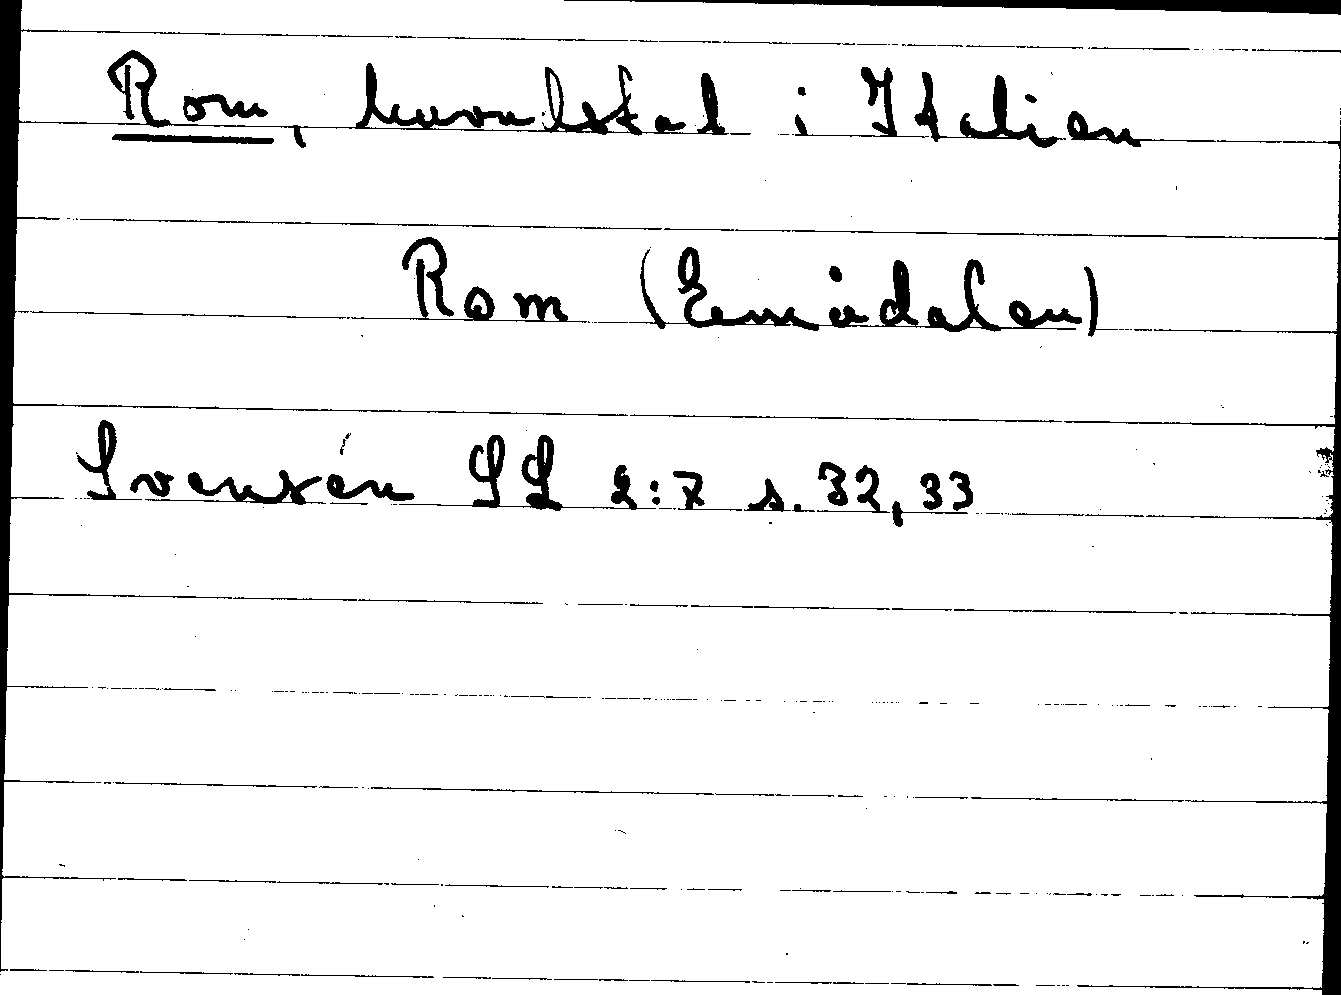 Rom, huvudstad i Italien
Rom (Emådalen)
Svensén SL 2:7 s. 32, 33